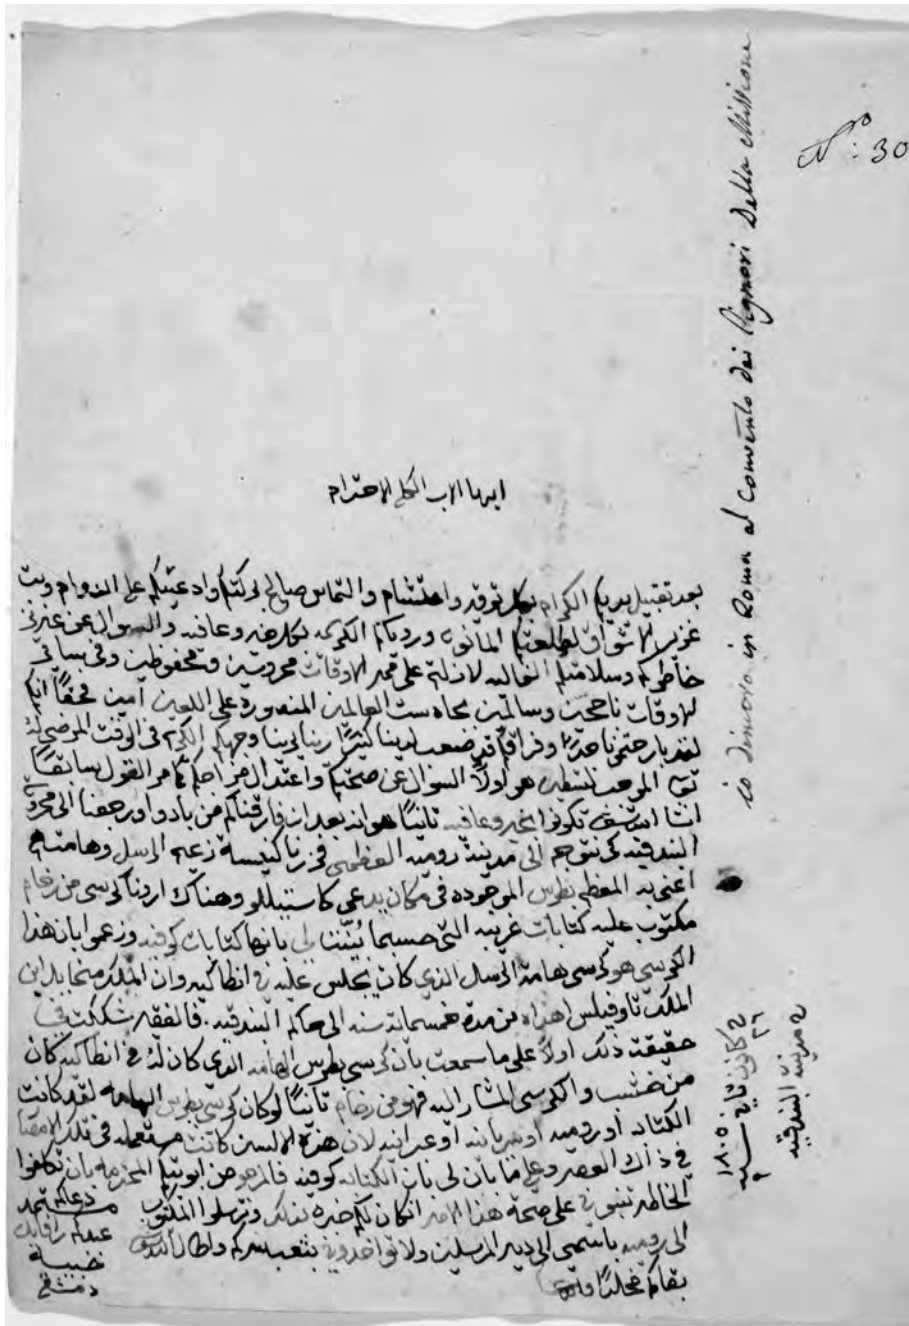 No: 30
io dimoro in Roma al Convento dei Signori Della Missione
ايها الاب الكلي الاحترام
بعد تقبيل يديكم الكرام بكل توقير واحتشام والتماس صالح بركتكم وادعيتكم على الدوام وبث
غزير الاشواق لطلعتكم المانوسه ورؤياكم الكريمه بكل خير وعافيه والسوال عن عزيز
خاطركم وسلامتكم الغاليه لازلتم على ممر الاوقات محروسين ومحفوظين وفي سائر
الاوقات ناجحين وسالمين بجاه ست العالمين المنصوره على اللعين امين
هو اولا السوال عن صحتكم واعتدال مزاجكم كما مر القول سابقا
تكونوا بخير وعافيه ثانيا هو انه بعد ان فارقناكم من بادوا ورجعنا الى محروسة
البندقيه كي نتوجه الى مدينة روميه العظمى فزرنا كنيسة زعيم الرسل وهامتهم
اعني به المعظم بطرس الموجوده في مكان يدعى كاستيللو وهناك ارونا كرسي من رخام
مكتوب عليه كتابات غريبه التي حسبما بان لي بانها كتابات كوفيه وزعموا بان هذا
الكرسي هو كرسي هامة الرسل الذي كان يجلس عليه في انطاكيه وان الملك ميخايل ابن
الملك تاوفيلس اهداه من مدة خمسماية سنه الى حاكم البندقيه. فالفقير شككت في
حقيقة ذلك اولا على ما سمعت بان كرسي بطرس الهامه الذي كان له في انطاكيه كان
من خشب والكرسي المشار اليه فهو من رخام ثانيا لو كان كرسي بطرس الهامه لقد كانت
الكتابه او روميه او سريانيه او عبرانيه لان هذه الالسن كانت مستعمله في تلك
في ذاك العصر وعلى ما بان لي بان الكتابه كوفيه فالمرجو من ابوتكم المحترمه بان تكلفوا
الخاطر على صحة هذا الامر ان كان لكم خبره بذلك وترسلوا المكتوب
الى روميه باسمي الى دير المرسلين ولا تواخذوني بتعبكم واطال الله
بقاكم
دعاكم مستمد
عبدكم رافاييل
دمشقي
في مدينة البندقيه
في كانون ثاني سنه ١٨٠٥